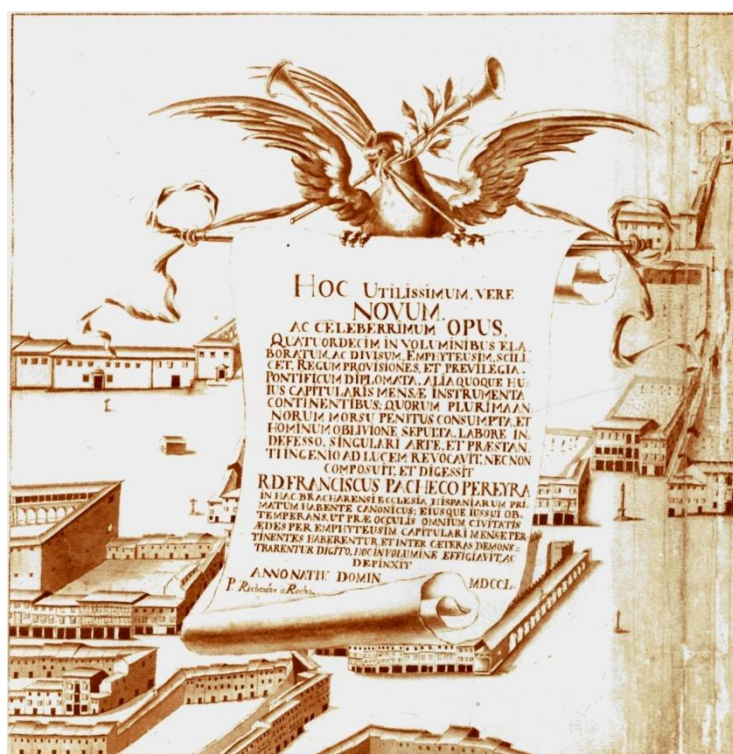 HOC UTILISSIMUM, VERE
NOVUM,
AC CELEBERRIMUM OPUS,
QUATUORDECIM IN VOLUMINIBUS ELA-
BORATUM, AC DIVISUM, EMPHYTEUSIM, SCILI-
CET, REGUM PROVISIONES, ET PREVILEGIA,
PONTIFICUM DIPLOMATA, ALIA QUOQUE HU-
IUS CAPITULARIS MENSÆ INSTRUMENTA
CONTINENTIBUS; QUORUM PLURIMA AN-
NORUM MORSU PENITUS CONSUMPTA, ET
HOMINUM OBLIVIONE SEPULTA, LABORE IN-
DEFESSO, SINGULARI ARTE, ET PRÆSTAN-
TI INGENIO AD LUCEM REVOCAVIT, NEC NON
COMPOSUIT, ET DIGESSIT
R.D. FRANCISCUS PACHECO PEREYRA
IN HAC BRACHARENSI ECCLESIA HISPANIARUM PRI-
MATUM HABENTE CANONICUS; EIUSQUE IUSSUI OB-
TEMPERANS, UT PRÆ OCCULIS OMNIUM CIVITATIS
ÆDES PER EMPHYTEUSIM CAPITULARI MENSÆ PER-
TINENTES HABERENTUR, ET INTER CÆTERAS DEMONS-
TRARENTUR DIGITO, HOC IN VOLUMINE EFFIGIAVIT, AC
DEPINXIT
ANNO NATIV. DOMIN. MDCCL.
P. Ricardus a Rocha.